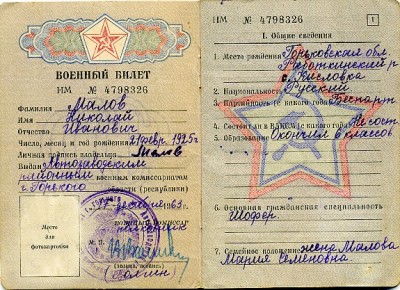 ВОЕННЫЙ БИЛЕТ
НМ № 4798326
Фамилия Малов
Имя Николай
Отчество Иванович
Число, месяц и год рождения 1925г
Личная подпись владельца Малов
Выдан Автозаводским
районным военным комиссариатом
г. Горького области (республики)
1963г.
военный комиссар
полковник
Место
для
фотокарточки
М. П.
(звание, подпись)
НМ № 4798326
1
I. Общие сведения
1. Место рождения Горьковская обл.
Работкинский р
с. Кисловка
2. Национальность Русский
3. Партийность (с какого года) Беспарт.
4. Состоит ли в ВЛКСМ (с какого года) Не сост
5. Образование Окончил 6 классов
6. Основная гражданская специальность
Шофер.
7. Семейное положение жена Малова
Мария Семеновна.